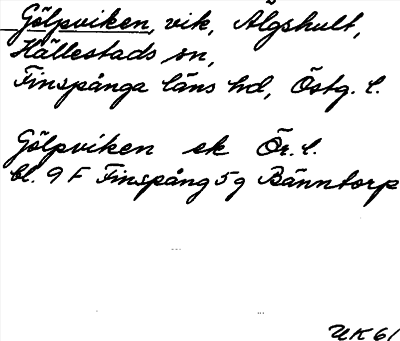 Gölpviken, vik, Älgshult,
Hällestads sn,
Finspånga läns hd, Östg. l.
Gölpviken ek Ör. l.
bl. 9 F Finspång 5g Bänntorp
UK 61